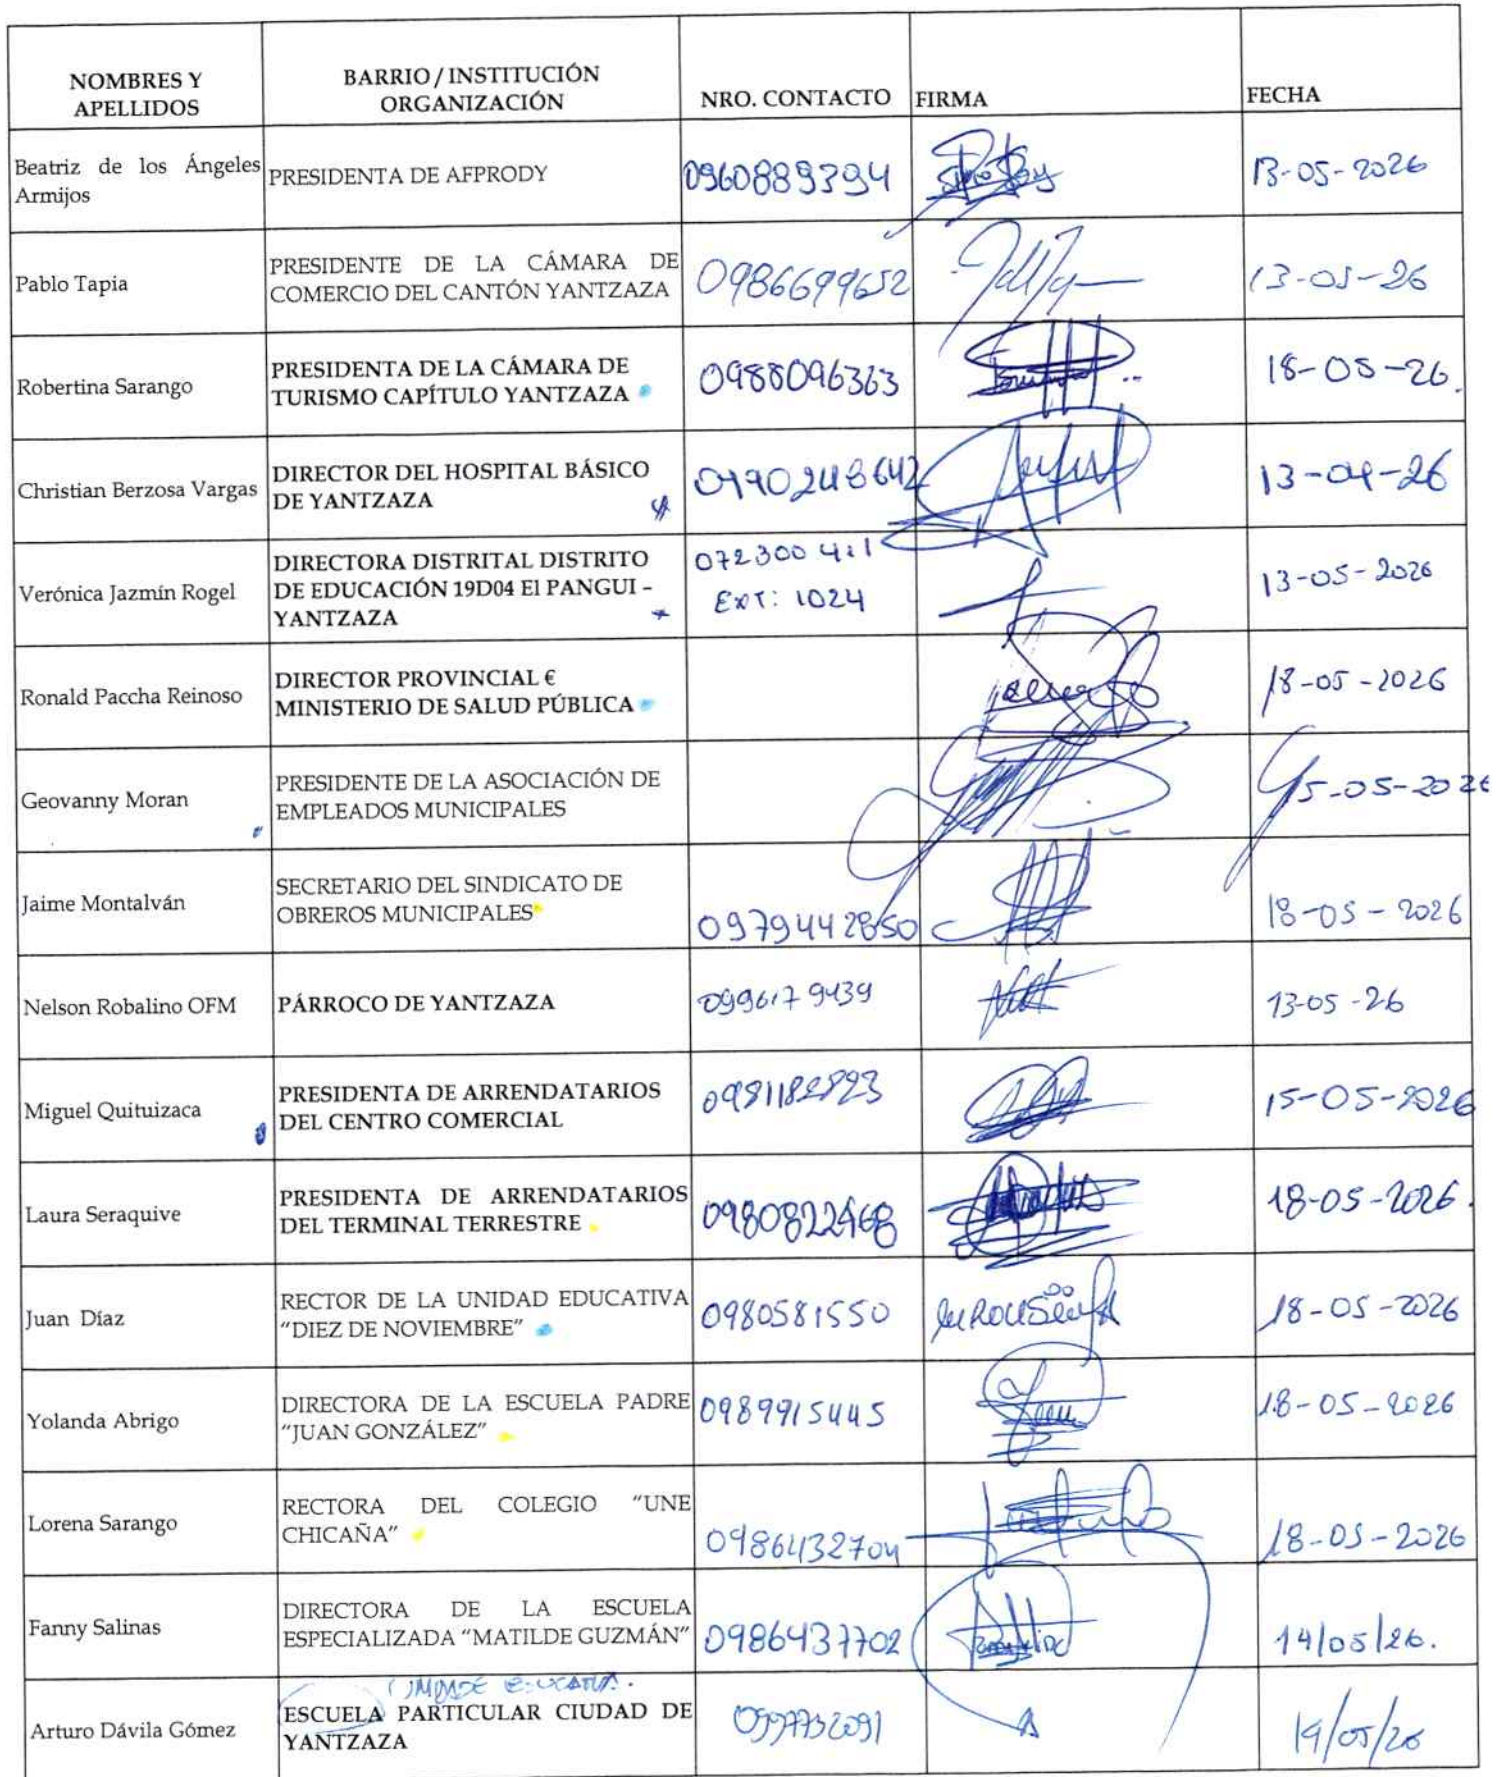 NOMBRES Y APELLIDOS BARRIO / INSTITUCIÓN ORGANIZACIÓN NRO. CONTACTO FIRMA FECHA
Beatriz de los Ángeles Armijos PRESIDENTA DE AFPRODY 0960889394 13-05-2026
Pablo Tapia PRESIDENTE DE LA CÁMARA DE COMERCIO DEL CANTÓN YANTZAZA 0986699652 13-05-26
Robertina Sarango PRESIDENTA DE LA CÁMARA DE TURISMO CAPÍTULO YANTZAZA 0988096363 18-05-26.
Christian Berzosa Vargas DIRECTOR DEL HOSPITAL BÁSICO DE YANTZAZA 13-04-26
Verónica Jazmín Rogel DIRECTORA DISTRITAL DISTRITO DE EDUCACIÓN 19D04 El PANGUI – YANTZAZA EXT: 1024 13-05-2026
Ronald Paccha Reinoso DIRECTOR PROVINCIAL € MINISTERIO DE SALUD PÚBLICA 18-05-2026
Geovanny Moran PRESIDENTE DE LA ASOCIACIÓN DE EMPLEADOS MUNICIPALES 15-05-2026
Jaime Montalván SECRETARIO DEL SINDICATO DE OBREROS MUNICIPALES 0979442850 18-05-2026
Nelson Robalino OFM PÁRROCO DE YANTZAZA 0996179439 13-05-26
Miguel Quituizaca PRESIDENTA DE ARRENDATARIOS DEL CENTRO COMERCIAL 15-05-2026
Laura Seraquive PRESIDENTA DE ARRENDATARIOS DEL TERMINAL TERRESTRE 18-05-2026.
Juan Díaz RECTOR DE LA UNIDAD EDUCATIVA “DIEZ DE NOVIEMBRE” 0980581550 18-05-2026
Yolanda Abrigo DIRECTORA DE LA ESCUELA PADRE “JUAN GONZÁLEZ” 0989915445 18-05-2026
Lorena Sarango RECTORA DEL COLEGIO “UNE CHICAÑA” 0986432704 18-05-2026
Fanny Salinas DIRECTORA DE LA ESCUELA ESPECIALIZADA “MATILDE GUZMÁN” 0986437702 14/05/26.
Arturo Dávila Gómez ESCUELA PARTICULAR CIUDAD DE YANTZAZA 19/05/26